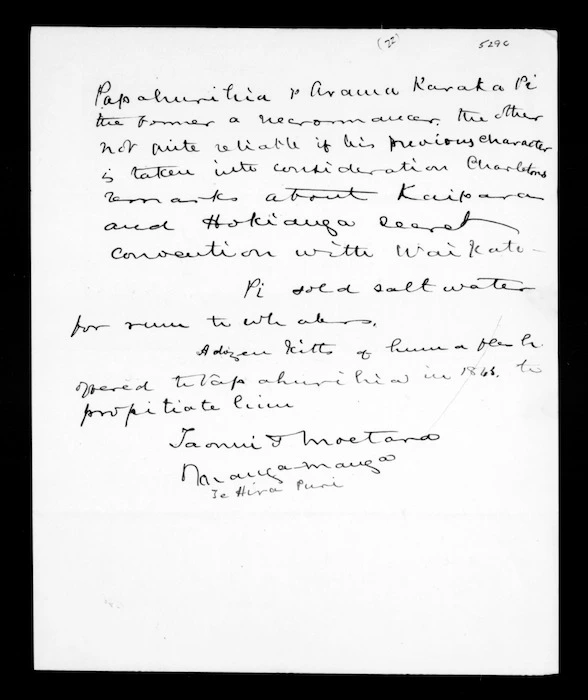 (22) 5296
Papahurihia & Arama Karaka Pi
the former a necromancer, the other
not quite reliable if his previous character
is taken into consideration Charletons
remarks about Kaipara
and Hokianga secret
convention with Waikato -
Pi sold salt water
for rum to whalers.
A dozen Kitts of human flesh
offered to Papahurihia in to
propitiate him
Taonui & Moetara
Maangamanga
Te Hira Puri